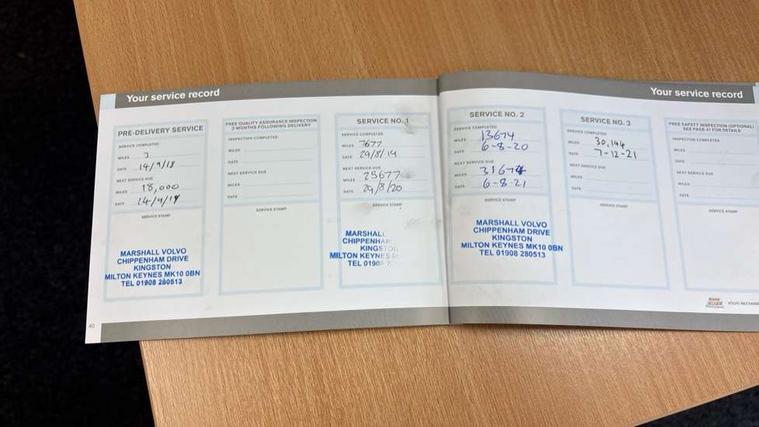 Your service record
PRE-DELIVERY SERVICE
SERVICE COMPLETED
MILES 3
DATE 14/9/18
NEXT SERVICE DUE
MILES 18,000
DATE 14/9/19
SERVICE STAMP
MARSHALL VOLVO
CHIPPENHAM DRIVE
KINGSTON
MILTON KEYNES MK10 0BN
TEL 01908 280513
FREE QUALITY ASSURANCE INSPECTION
3 MONTHS FOLLOWING DELIVERY
INSPECTION COMPLETED
MILES
DATE
NEXT SERVICE DUE
MILES
DATE
SERVICE STAMP
SERVICE NO. 1
SERVICE COMPLETED
MILES 7677
DATE 29/8/19
NEXT SERVICE DUE
MILES 25677
DATE 29/8/20
SERVICE STAMP
MARSHALL
CHIPPENHA
KINGSTO
MILTON KEYNES
TEL 0190
40
Your service record
SERVICE NO. 2
SERVICE COMPLETED
MILES 13674
DATE 6-8-20
NEXT SERVICE DUE
MILES 31674
DATE 6-8-21
SERVICE STAMP
MARSHALL VOLVO
CHIPPENHAM DRIVE
KINGSTON
MILTON KEYNES MK10 0BN
TEL 01908 280513
SERVICE NO. 3
SERVICE COMPLETED
MILES 30,144
DATE 7-12-21
NEXT SERVICE DUE
MILES
DATE
SERVICE STAMP
FREE SAFETY INSPECTION (OPTIONAL)
SEE PAGE 41 FOR DETAILS
INSPECTION COMPLETED
MILES
DATE
NEXT SERVICE DUE
MILES
DATE
SERVICE STAMP